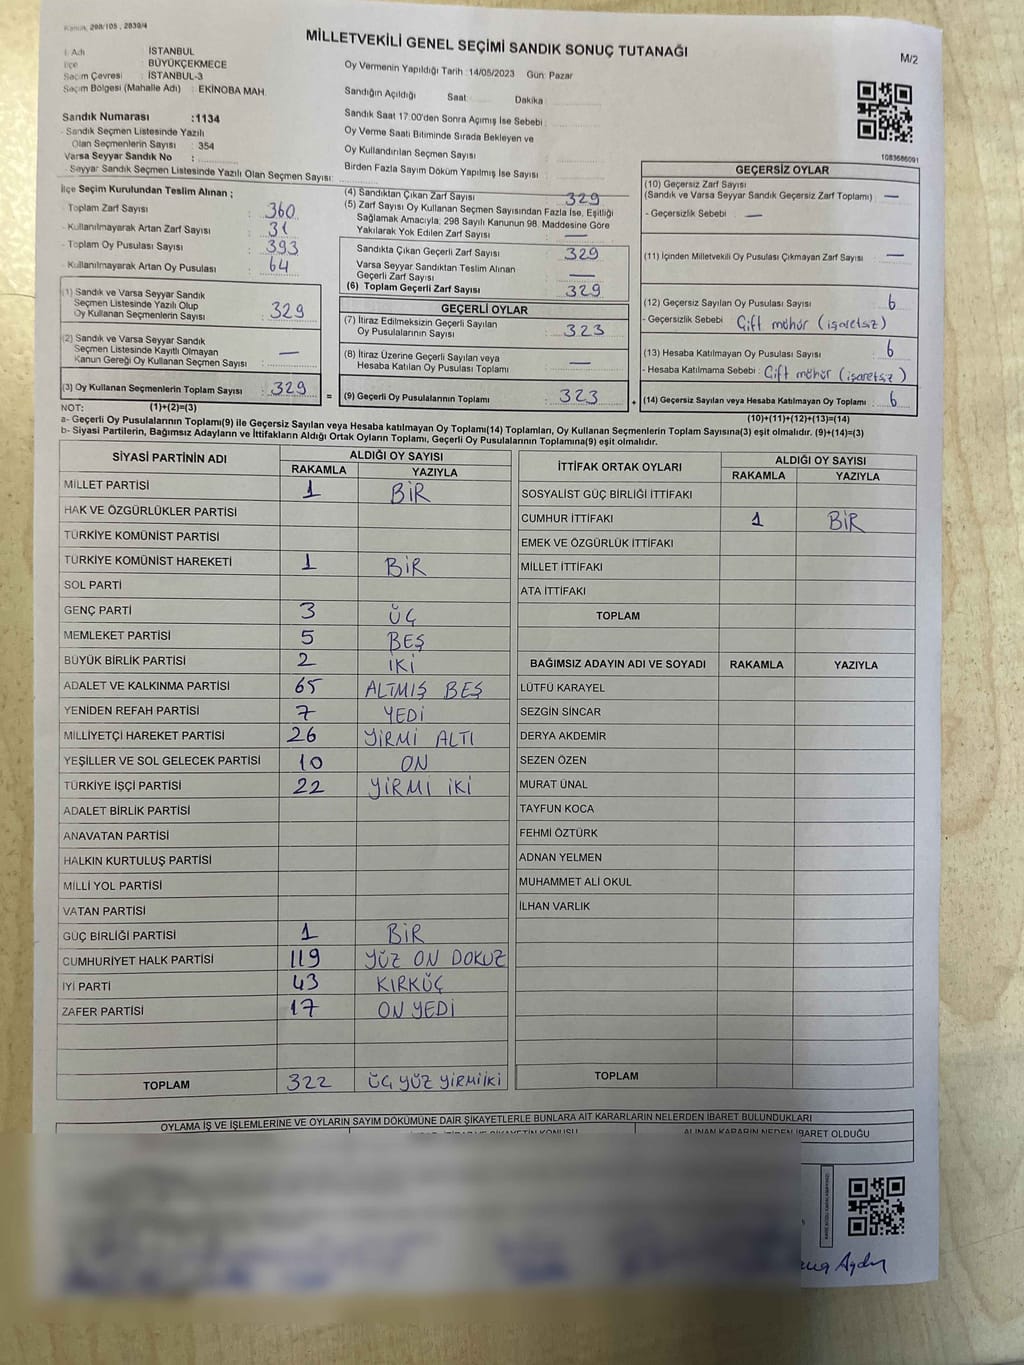 Kanun, 298/105 , 2839/4
MİLLETVEKİLİ GENEL SEÇİMİ SANDIK SONUÇ TUTANAĞI
M/2
İl Adı : İSTANBUL
İlçe : BÜYÜKÇEKMECE
Seçim Çevresi : İSTANBUL-3
Seçim Bölgesi (Mahalle Adı) : EKİNOBA MAH.
Sandık Numarası :1134
- Sandık Seçmen Listesinde Yazılı
Olan Seçmenlerin Sayısı : 354
Varsa Seyyar Sandık No :
- Seyyar Sandık Seçmen Listesinde Yazılı Olan Seçmen Sayısı:
Oy Vermenin Yapıldığı Tarih :14/05/2023 Gün: Pazar
Sandığın Açıldığı Saat Dakika
Sandık Saat 17:00'den Sonra Açımış İse Sebebi :
Oy Verme Saati Bitiminde Sırada Bekleyen ve
Oy Kullandırılan Seçmen Sayısı
Birden Fazla Sayım Döküm Yapılmış İse Sayısı :
1083686091
İlçe Seçim Kurulundan Teslim Alınan ;
- Toplam Zarf Sayısı : 360
- Kullanılmayarak Artan Zarf Sayısı : 31
- Toplam Oy Pusulası Sayısı : 393
- Kullanılmayarak Artan Oy Pusulası : 64
(1) Sandık ve Varsa Seyyar Sandık
Seçmen Listesinde Yazılı Olup
Oy Kullanan Seçmenlerin Sayısı : 329
(2) Sandık ve Varsa Seyyar Sandık
Seçmen Listesinde Kayıtlı Olmayan
Kanun Gereği Oy Kullanan Seçmen Sayısı : —
(3) Oy Kullanan Seçmenlerin Toplam Sayısı : 329
(1)+(2)=(3)
(4) Sandıktan Çıkan Zarf Sayısı : 329
(5) Zarf Sayısı Oy Kullanan Seçmen Sayısından Fazla İse, Eşitliği
Sağlamak Amacıyla, 298 Sayılı Kanunun 98. Maddesine Göre
Yakılarak Yok Edilen Zarf Sayısı : —
Sandıkta Çıkan Geçerli Zarf Sayısı : 329
Varsa Seyyar Sandıktan Teslim Alınan
Geçerli Zarf Sayısı : —
(6) Toplam Geçerli Zarf Sayısı : 329
GEÇERLİ OYLAR
(7) İtiraz Edilmeksizin Geçerli Sayılan
Oy Pusulalarının Sayısı : 323
(8) İtiraz Üzerine Geçerli Sayılan veya
Hesaba Katılan Oy Pusulası Toplamı : —
= (9) Geçerli Oy Pusulalarının Toplamı : 323
GEÇERSİZ OYLAR
(10) Geçersiz Zarf Sayısı
(Sandık ve Varsa Seyyar Sandık Geçersiz Zarf Toplamı) : —
- Geçersizlik Sebebi : —
(11) İçinden Milletvekili Oy Pusulası Çıkmayan Zarf Sayısı : —
(12) Geçersiz Sayılan Oy Pusulası Sayısı : 6
- Geçersizlik Sebebi : Çift mühür (işaretsiz)
(13) Hesaba Katılmayan Oy Pusulası Sayısı : 6
- Hesaba Katılmama Sebebi : Çift mühür (işaretsiz)
+ (14) Geçersiz Sayılan veya Hesaba Katılmayan Oy Toplamı : 6
(10)+(11)+(12)+(13)=(14)
NOT:
a- Geçerli Oy Pusulalarının Toplamı(9) ile Geçersiz Sayılan veya Hesaba katılmayan Oy Toplamı(14) Toplamları, Oy Kullanan Seçmenlerin Toplam Sayısına(3) eşit olmalıdır. (9)+(14)=(3)
b- Siyasi Partilerin, Bağımsız Adayların ve İttifakların Aldığı Ortak Oyların Toplamı, Geçerli Oy Pusulalarının Toplamına(9) eşit olmalıdır.
SİYASİ PARTİNİN ADI ALDIĞI OY SAYISI
RAKAMLA YAZIYLA
MİLLET PARTİSİ 1 BİR
HAK VE ÖZGÜRLÜKLER PARTİSİ
TÜRKİYE KOMÜNİST PARTİSİ
TÜRKİYE KOMÜNİST HAREKETİ 1 BİR
SOL PARTİ
GENÇ PARTİ 3 ÜÇ
MEMLEKET PARTİSİ 5 BEŞ
BÜYÜK BİRLİK PARTİSİ 2 İKİ
ADALET VE KALKINMA PARTİSİ 65 ALTMIŞ BEŞ
YENİDEN REFAH PARTİSİ 7 YEDİ
MİLLİYETÇİ HAREKET PARTİSİ 26 YİRMİ ALTI
YEŞİLLER VE SOL GELECEK PARTİSİ 10 ON
TÜRKİYE İŞÇİ PARTİSİ 22 YİRMİ İKİ
ADALET BİRLİK PARTİSİ
ANAVATAN PARTİSİ
HALKIN KURTULUŞ PARTİSİ
MİLLİ YOL PARTİSİ
VATAN PARTİSİ
GÜÇ BİRLİĞİ PARTİSİ 1 BİR
CUMHURİYET HALK PARTİSİ 119 YÜZ ON DOKUZ
İYİ PARTİ 43 KIRKÜÇ
ZAFER PARTİSİ 17 ON YEDİ
TOPLAM 322 ÜÇ YÜZ YİRMİİKİ
İTTİFAK ORTAK OYLARI ALDIĞI OY SAYISI
RAKAMLA YAZIYLA
SOSYALİST GÜÇ BİRLİĞİ İTTİFAKI
CUMHUR İTTİFAKI 1 BİR
EMEK VE ÖZGÜRLÜK İTTİFAKI
MİLLET İTTİFAKI
ATA İTTİFAKI
TOPLAM
BAĞIMSIZ ADAYIN ADI VE SOYADI RAKAMLA YAZIYLA
LÜTFÜ KARAYEL
SEZGİN SİNCAR
DERYA AKDEMİR
SEZEN ÖZEN
MURAT ÜNAL
TAYFUN KOCA
FEHMİ ÖZTÜRK
ADNAN YELMEN
MUHAMMET ALİ OKUL
İLHAN VARLIK
TOPLAM
OYLAMA İŞ VE İŞLEMLERİNE VE OYLARIN SAYIM DÖKÜMÜNE DAİR ŞİKAYETLERLE BUNLARA AİT KARARLARIN NELERDEN İBARET BULUNDUKLARI
ALINAN KARARIN NEDEN İBARET OLDUĞU